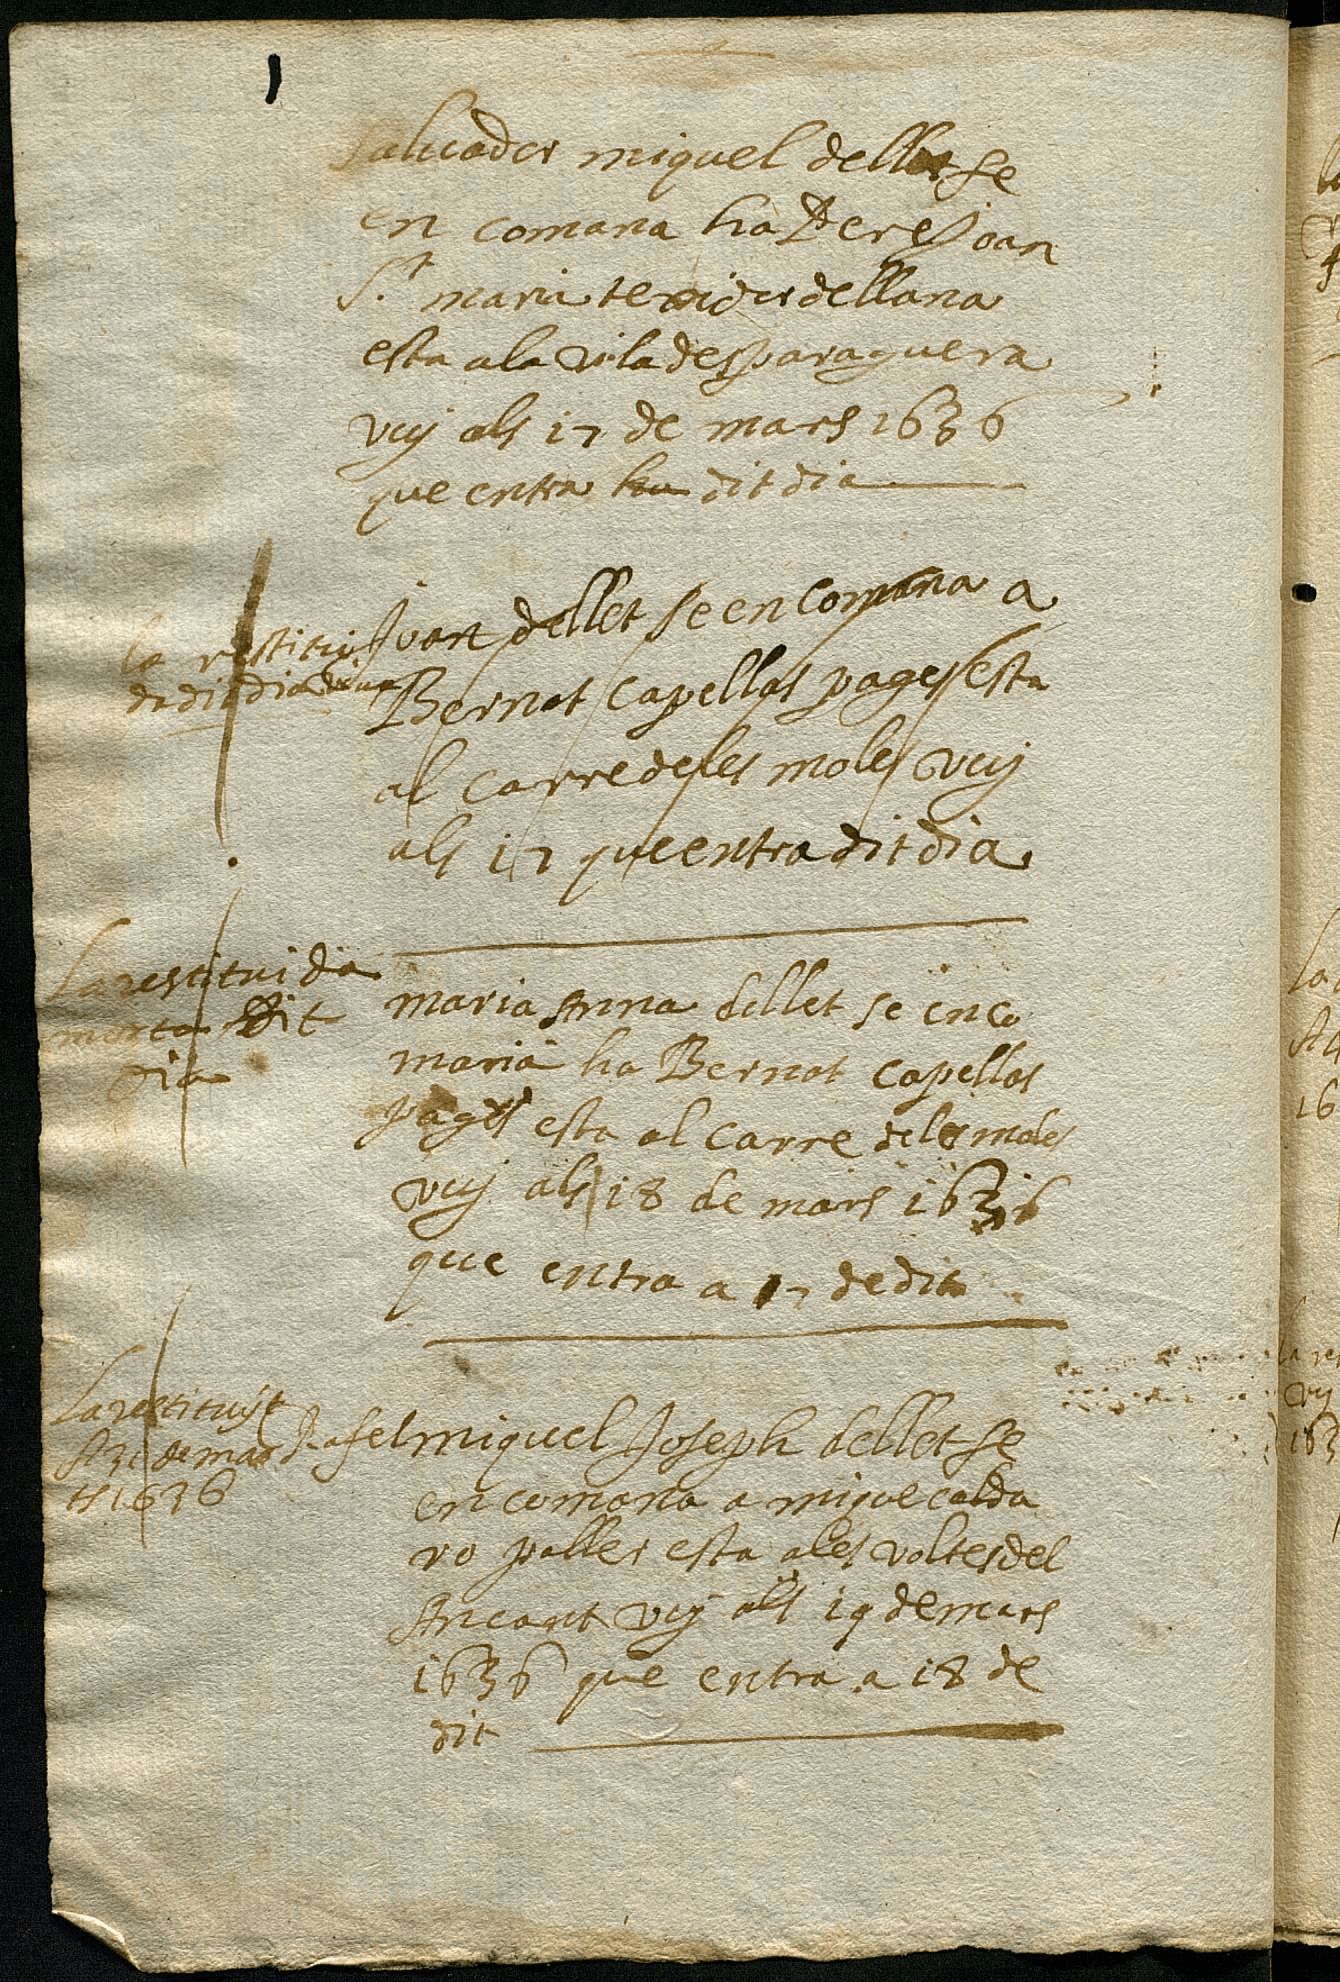 Saluador miquel dellet se
en comana ha Pere Joan
St maria texidor dellana
esta ala vila desparaguera
vuy als 17 de mars 1636
que entra dit dia
la restitui
de dit dia
Juan dellet se en comana a
Bernat Capellas pages esta
al carre deles moles vuy
als 17 que entra dit dia
La restituida
morta dit
dia
maria Anna dellet se enco
mana ha Bernat capellas
pages esta al carre deles moles
vuy als 18 de mars 1636
que entra a 17 de dit
La restituyt
A 31 de mar
ts 1636
Rafel miquel Joseph dellet se
en comana a miquel calda
ro paller esta ales voltes del
Ancant vuy als 19 de mars
1636 que entra a 18 de
dit